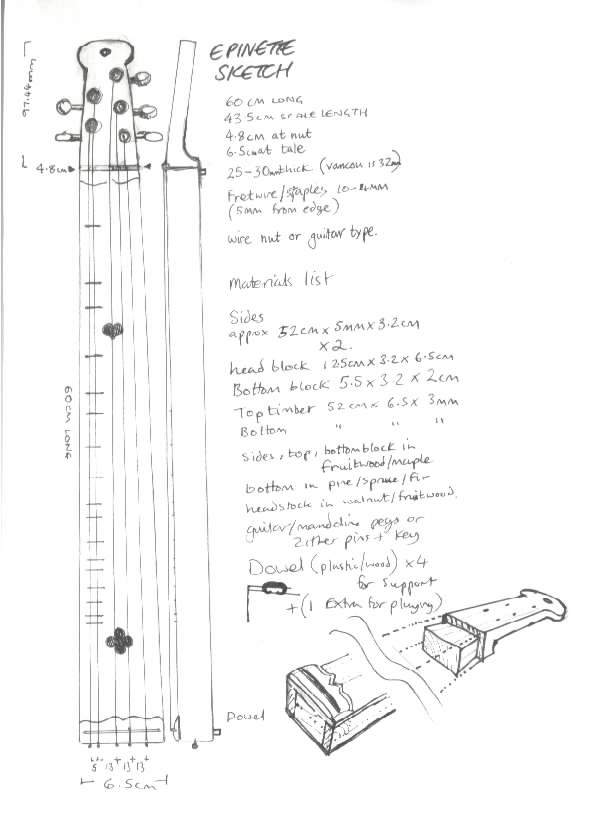 EPINETTE
SKETCH
60 CM LONG
43.5cm SCALE LENGTH
4.8cm at nut
6.5cm at tale
4.8cm
25-30mm thick (vancou is 32mm)
Fretwire/staples 10-
(5mm from edge)
wire nut or guitar type.
Materials list
Sides
approx 52cm x 5mm x 3.2cm
x 2.
head block 12.5cm x 3.2 x 6.5cm
Bottom block 5.5 x 3.2 x 2cm
Top timber 52cm x 6.5 x 3mm
Bottom " " "
60CM LONG
sides, top, bottom block in
fruitwood/maple
bottom in pine/spruce/fir
headstock in walnut/fruitwood.
guitar/mandoline pegs or
zither pins + key
Dowel (plastic/wood) x4
for support
+ (1 Extra for playing)
Dowel
5 13 13 13
6.5cm